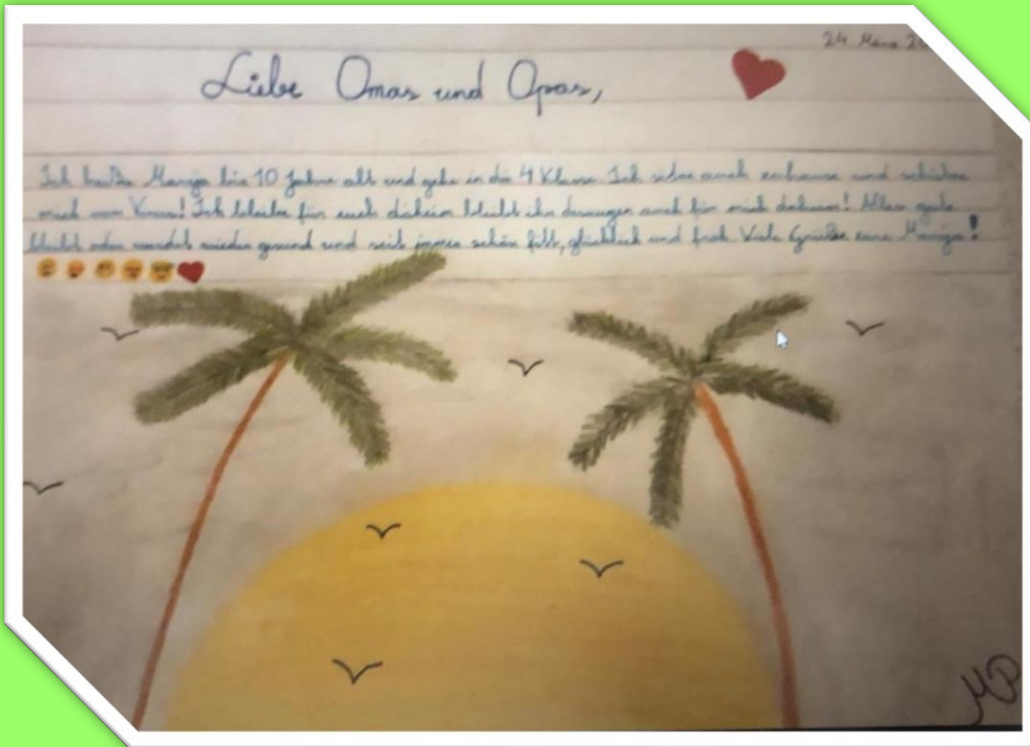 24 März
Liebe Omas und Opas,
Ich heiße Marija bin 10 Jahre alt und gehe in die 4 Klasse. Ich sitze auch zuhause und schütze
mich vom Virus! Ich bleibe für euch daheim bleibt ihr deswegen auch für mich daheim! Alles gute
bleibt oder werdet wieder gesund und seit immer schön fitt, glücklich und froh. Viele Grüße eure Marija!
MP